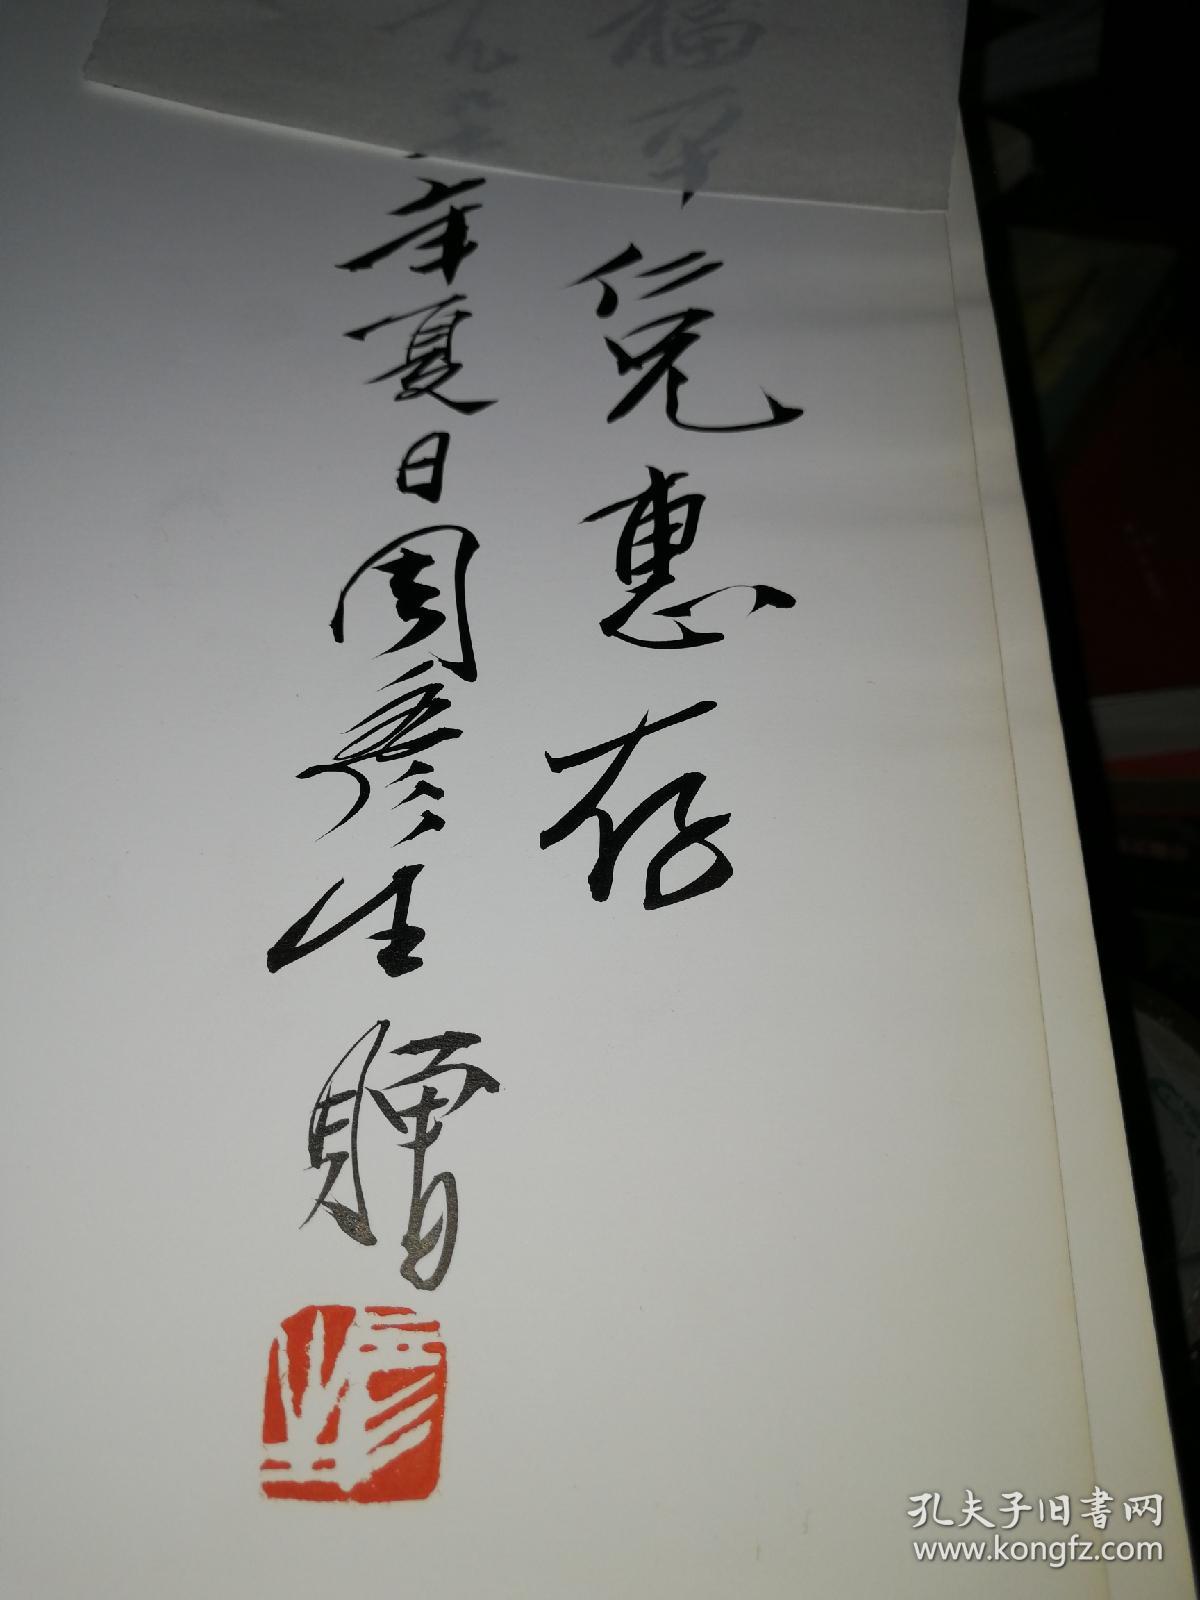 福军仁兄惠存
年夏日周彦生赠
彦生
孔夫子旧书网
www.kongfz.com